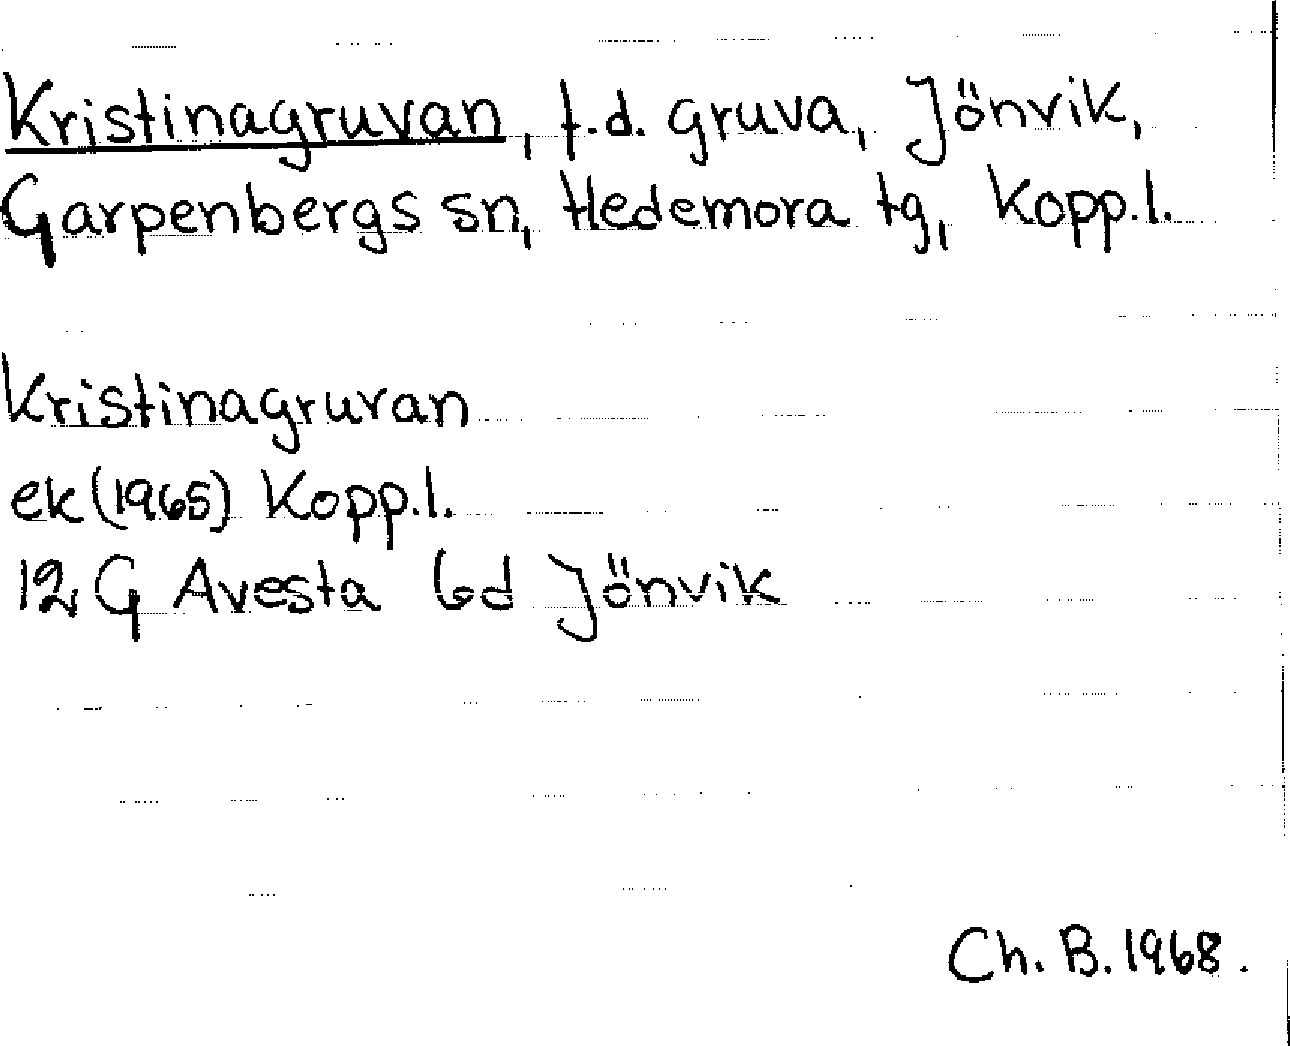 Kristinagruvan, f.d. gruva, Jönvik,
Garpenbergs sn, Hedemora tg, Kopp.l.
Kristinagruvan
ek (1965) Kopp.l.
12 G Avesta 6d Jönvik
Ch. B. 1968.